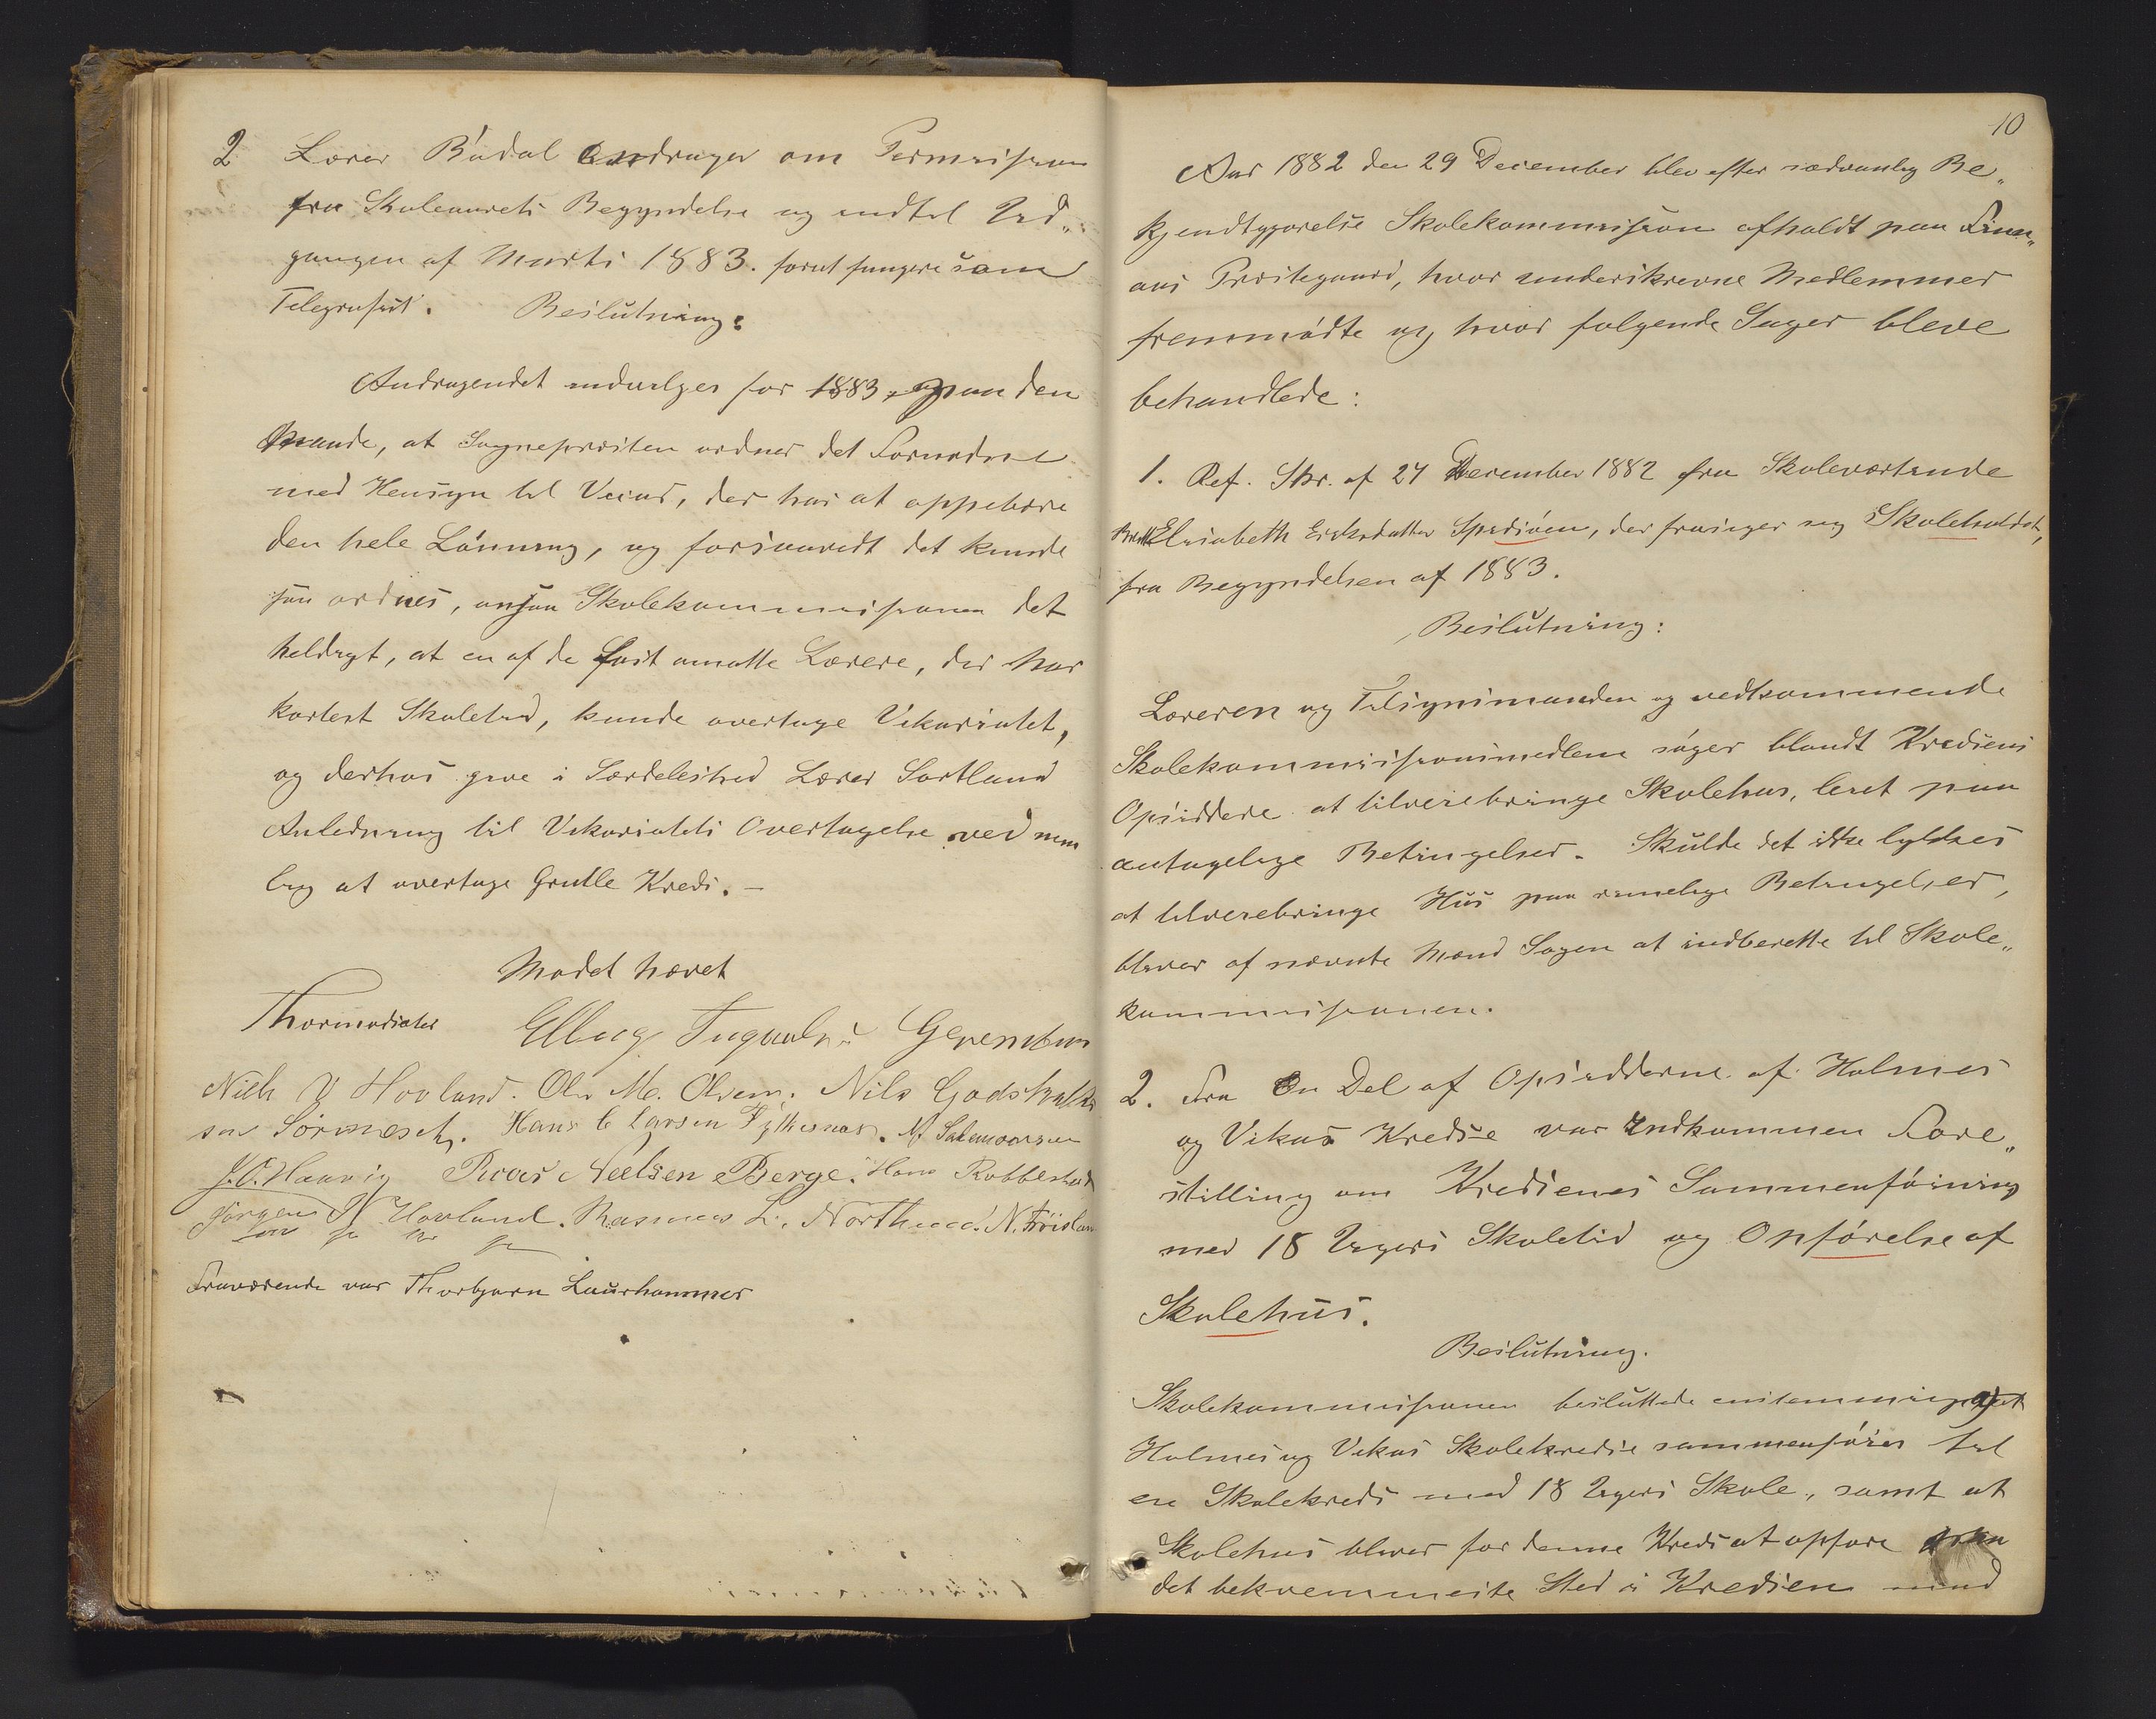 2 Lærer Bådal andrager om Permission
fra Skoleaarets Begyndelse og indtil Ud„
gangen af Marts 1883. forat fungere som
Telegrafist. Beslutning:
Andragendet indvilges for 1883, paa den
Maade, at Sognepresten ordner det Fornødne
med Hensyn til Vicar, der har at oppebære
den hele Lønning, og forsaavidt det kunde
saa ordnes, ansaa Skolekommissionen det
heldigt, at en af de fast ansatte Lærere, der har
kortest Skoletid, kunde overtage Vikariatet,
og derhos give i Særdeleshed Lærer Sortland
Anledning til Vikariatets Overtagelse ved nem
lig at overtage Grutle Kreds. –
Mødet hævet
Thormodsæter Elling Ingvalds. Geremdum
Niels N Hovland. Ole M. Olsen. Nils Godskalk
sen Sørnesch. Hans C Larsen Fylkesnæs. M Salemonsen
J. O. Haavig Roar Neelsen Berge. Hans Robberstad
Jørgen N Hovland. Rasmus L. Northun N. Frøisland
Fraværende var Thorbjørn Laurhammer
10
Aar 1882 den 29 December blev efter sædvanlig Be„
kjendtgjørelse Skolekommission afholdt paa Finn„
aas Prestegaard, hvor underskrevne Medlemmer
fremmødte og hvor følgende Sager bleve
behandlede:
1. Ref. Skr. af 27 December 1882 fra Skoleværtinde
Elisabeth Eriksdatter Spidsøen, der frasiger sig Skoleholdet,
fra Begyndelsen af 1883.
Beslutning:
Læreren og Tilsynsmanden og vedkommende
Skolekommissionsmedlem søger blandt Kredsens
Opsiddere at tilveiebringe Skolehus, leiet paa
antagelige Betingelser. Skulde det ikke lykkes
at tilveiebringe Hus paa rimelige Betingelser,
bliver af nævnte Mænd Sagen at indberette til Skole„
kommissionen.
2. Fra En Del af Opsidderne af Holmes
og Vikas Kredse var Indkommen Fore„
stilling om Kredsenes Sammenføining
med 18 Ugers Skoletid og Opførelse af
Skolehus.
Beslutning.
Skolekommissionen besluttede enstemmig at
Holmes og Vikas Skolekredse sammenføies til
en Skolekreds med 18 Ugers Skole, samt at
Skolehus bliver for denne Kreds at opføre
det bekvemmeste Sted i Kredsen mod